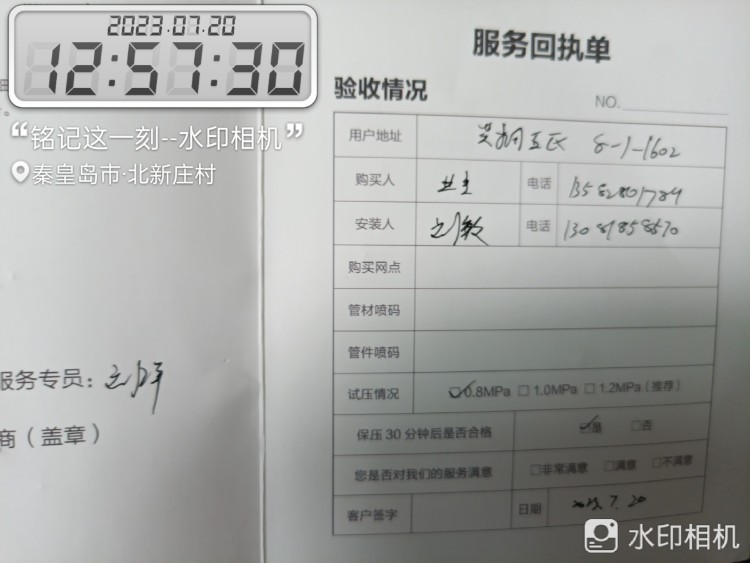 2023.07.20
12:57:30
“铭记这一刻--水印相机”
秦皇岛市·北新庄村
服务专员：
商（盖章）
服务回执单
验收情况
NO.
用户地址 五区 8-1-1602
购买人 业主 电话
安装人 电话
购买网点
管材喷码
管件喷码
试压情况 ☑0.8MPa □1.0MPa □1.2MPa（推荐）
保压30分钟后是否合格 ☑是 □否
您是否对我们的服务满意 □非常满意 □满意 □不满意
客户签字 日期 2023.7.20
水印相机